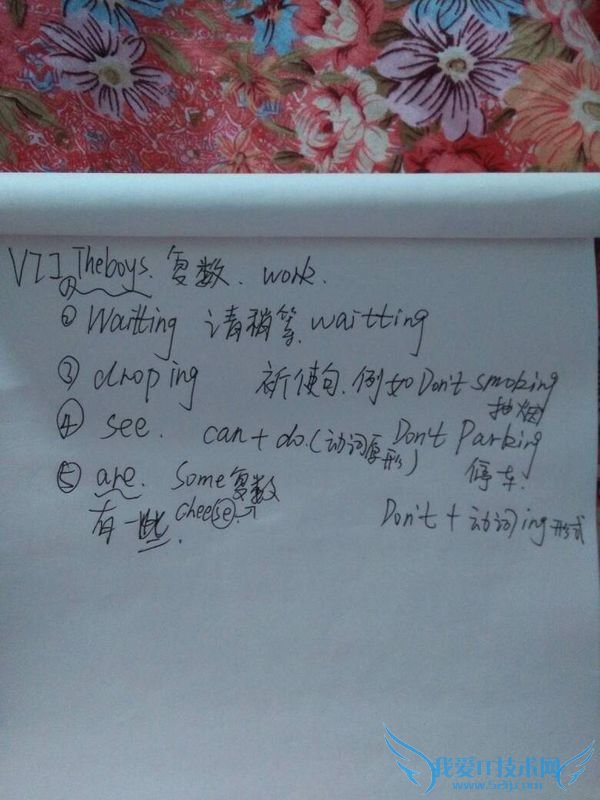 VII The boys. 复数. work.
② Waitting 请稍等. waitting
③ droping 祈使句. 例如 Don't smoking
抽烟
④ see. can + do. (动词原形) Don't Parking
停车.
⑤ are. Some 复数
有一些. cheese.
Don't + 动词ing 形式
我爱IT技术网
www.52ij.com